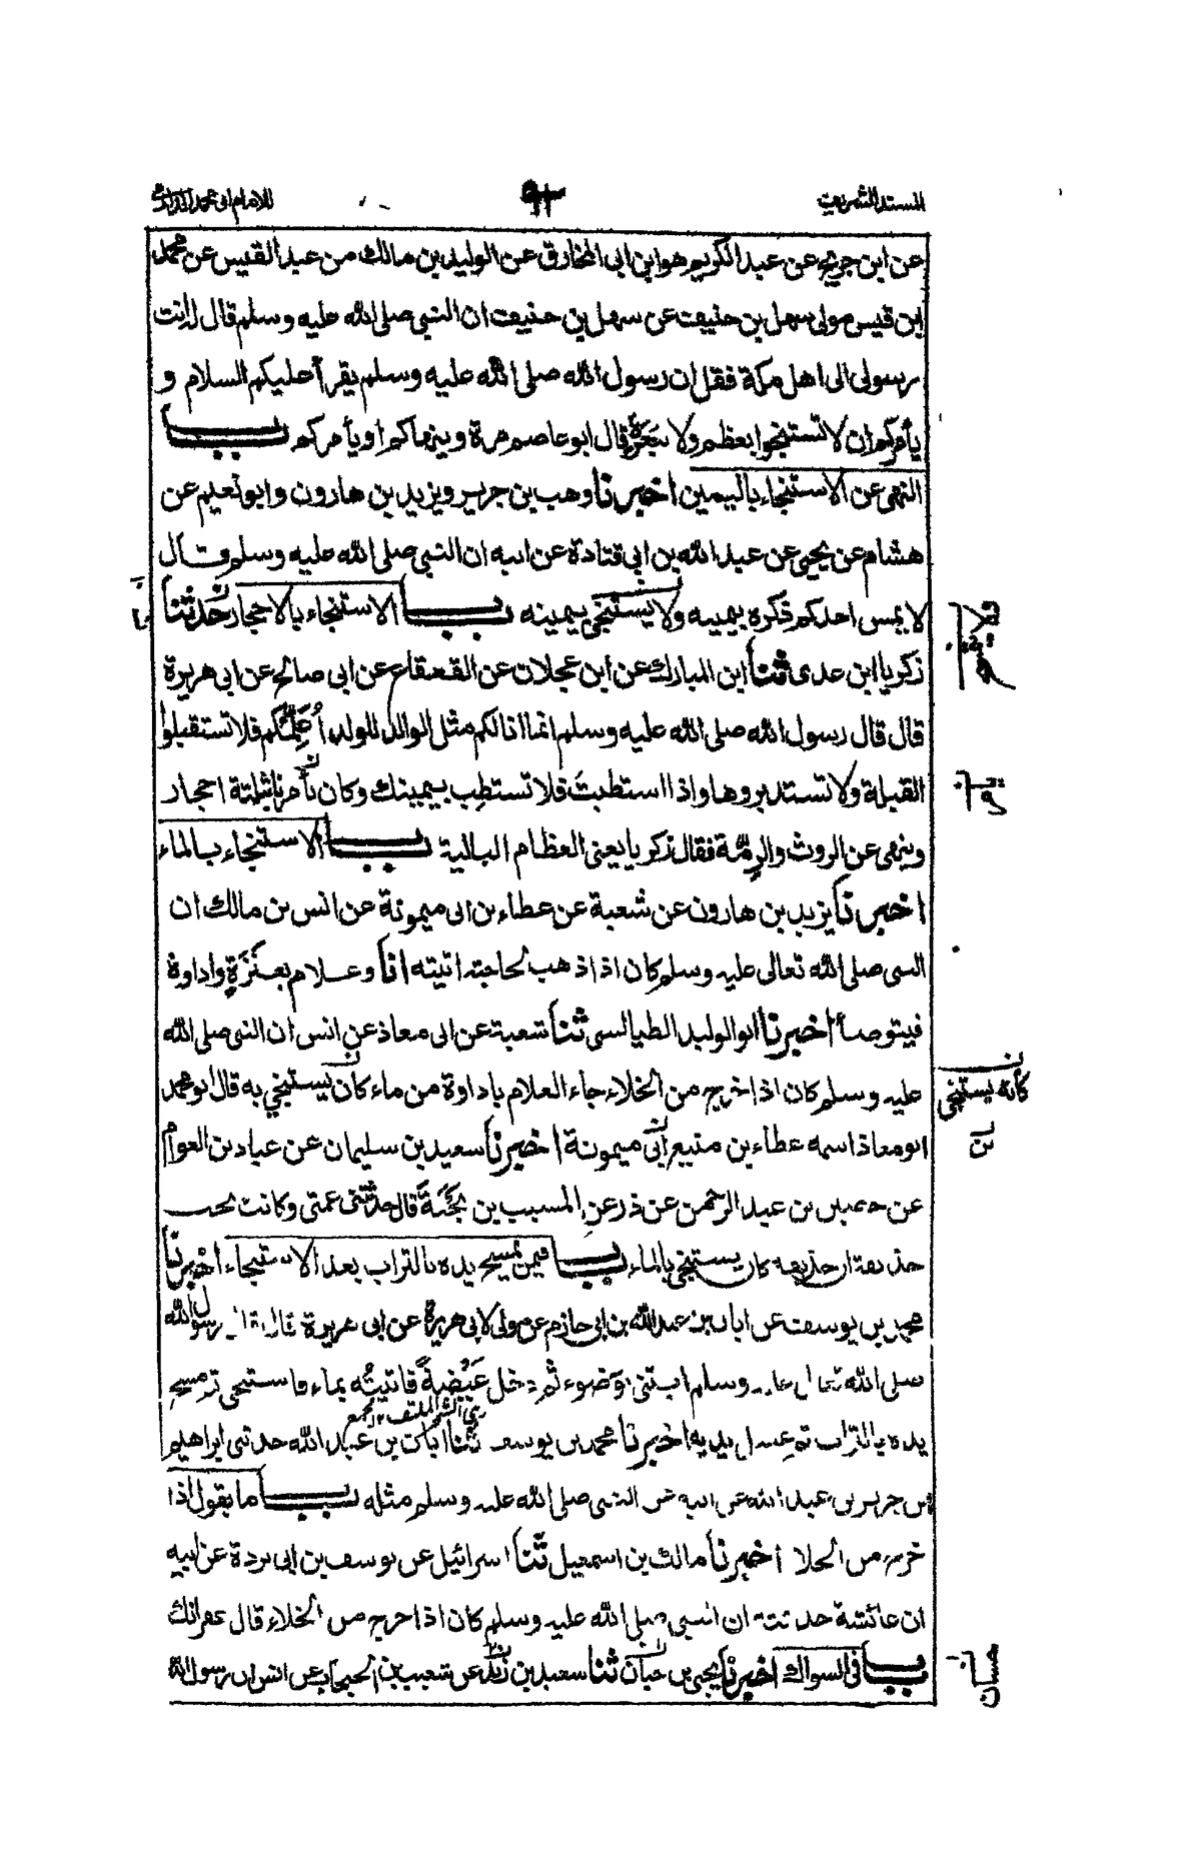 المسند الشريف ٩٢ للامام ابى محمد الدارمى
عن ابن جريج عن عبد الكريم هو ابن ابى المخارق عن الوليد بن مالك من عبد القيس عن محمد
ابن قيس مولى سهل بن حنيف عن سهل بن حنيف ان النبى صلى الله عليه وسلم قال له انت
رسولى الى اهل مكة فقل ان رسول الله صلى الله عليه وسلم يقرأ عليكم السلام و
يأمركم ان لا تستنجوا بعظم ولا ببعرة قال ابو عاصم مرة وينهاكم او يأمركم باب
النهى عن الاستنجاء باليمين اخبرنا وهب بن جرير ويزيد بن هارون وابو نعيم عن
هشام عن يحيى عن عبد الله بن ابى قتادة عن ابيه ان النبى صلى الله عليه وسلم قال
لا يمس احدكم ذكره بيمينه ولا يستنجى بيمينه باب الاستنجاء بالاحجار حدثنا
زكريا ابن عدى ثنا ابن المبارك عن ابن عجلان عن القعقاع عن ابى صالح عن ابى هريرة
قال قال رسول الله صلى الله عليه وسلم انما انا لكم مثل الوالد للولد أُعَلِّمُكم فلا تستقبلوا
القبلة ولا تستدبروها واذا استطبتَ فلا تستطِب بيمينك وكان يأمرنا بثلثة احجار
وينهى عن الروث والرِمَّة فقال زكريا يعنى العظام البالية باب الاستنجاء بالماء
اخبرنا يزيد بن هارون عن شعبة عن عطاء بن ابى ميمونة عن انس بن مالك ان
النبى صلى الله تعالى عليه وسلم كان اذا ذهب لحاجته اتيته انا وغلام بعَنَزَةٍ واداوة
فيتوضأ اخبرنا ابو الوليد الطيالسى ثنا شعبة عن ابى معاذ عن انس ان النبى صلى الله
عليه وسلم كان اذا خرج من الخلاء جاء الغلام باداوة من ماء كان يستنجى به قال ابو محمد
ابو معاذ اسمه عطاء بن منيع ابى ميمونة اخبرنا سعيد بن سليمان عن عباد بن العوام
عن حصين بن عبد الرحمن عن ذر عن المسيب بن نَجَبَةَ قال حدثتنى عمتى وكانت تحت
حذيفة ان حذيفة كان يستنجى بالماء باب فيمن يمسح يده بالتراب بعد الاستنجاء اخبرنا
محمد بن يوسف عن ابان بن عبد الله بن ابى حازم عن مولى لابى هريرة عن ابى هريرة قال قال رسول الله
صلى الله تعالى عليه وسلم ائتنى بوَضوء ثم دخل غَيْضةً فاتيتُه بماء فاستنجى ثم مسح
يده بالتراب ثم غسل يديه اخبرنا محمد بن يوسف ثنا ابان بن عبد الله حدثنى ابراهيم
بن جرير بن عبد الله عن ابيه عن النبى صلى الله عليه وسلم مثله باب ما يقول اذا
خرج من الخلا اخبرنا مالك بن اسمعيل ثنا اسرائيل عن يوسف بن ابى بردة عن ابيه
ان عائشة حدثته ان النبى صلى الله عليه وسلم كان اذا خرج من الخلاء قال غفرانك
باب فى السواك اخبرنا يحيى بن حبان ثنا سعيد بن زيد عن شعيب بن الحبحاب عن انس ان رسول الله
كأنه يستنجى
بن
حسان